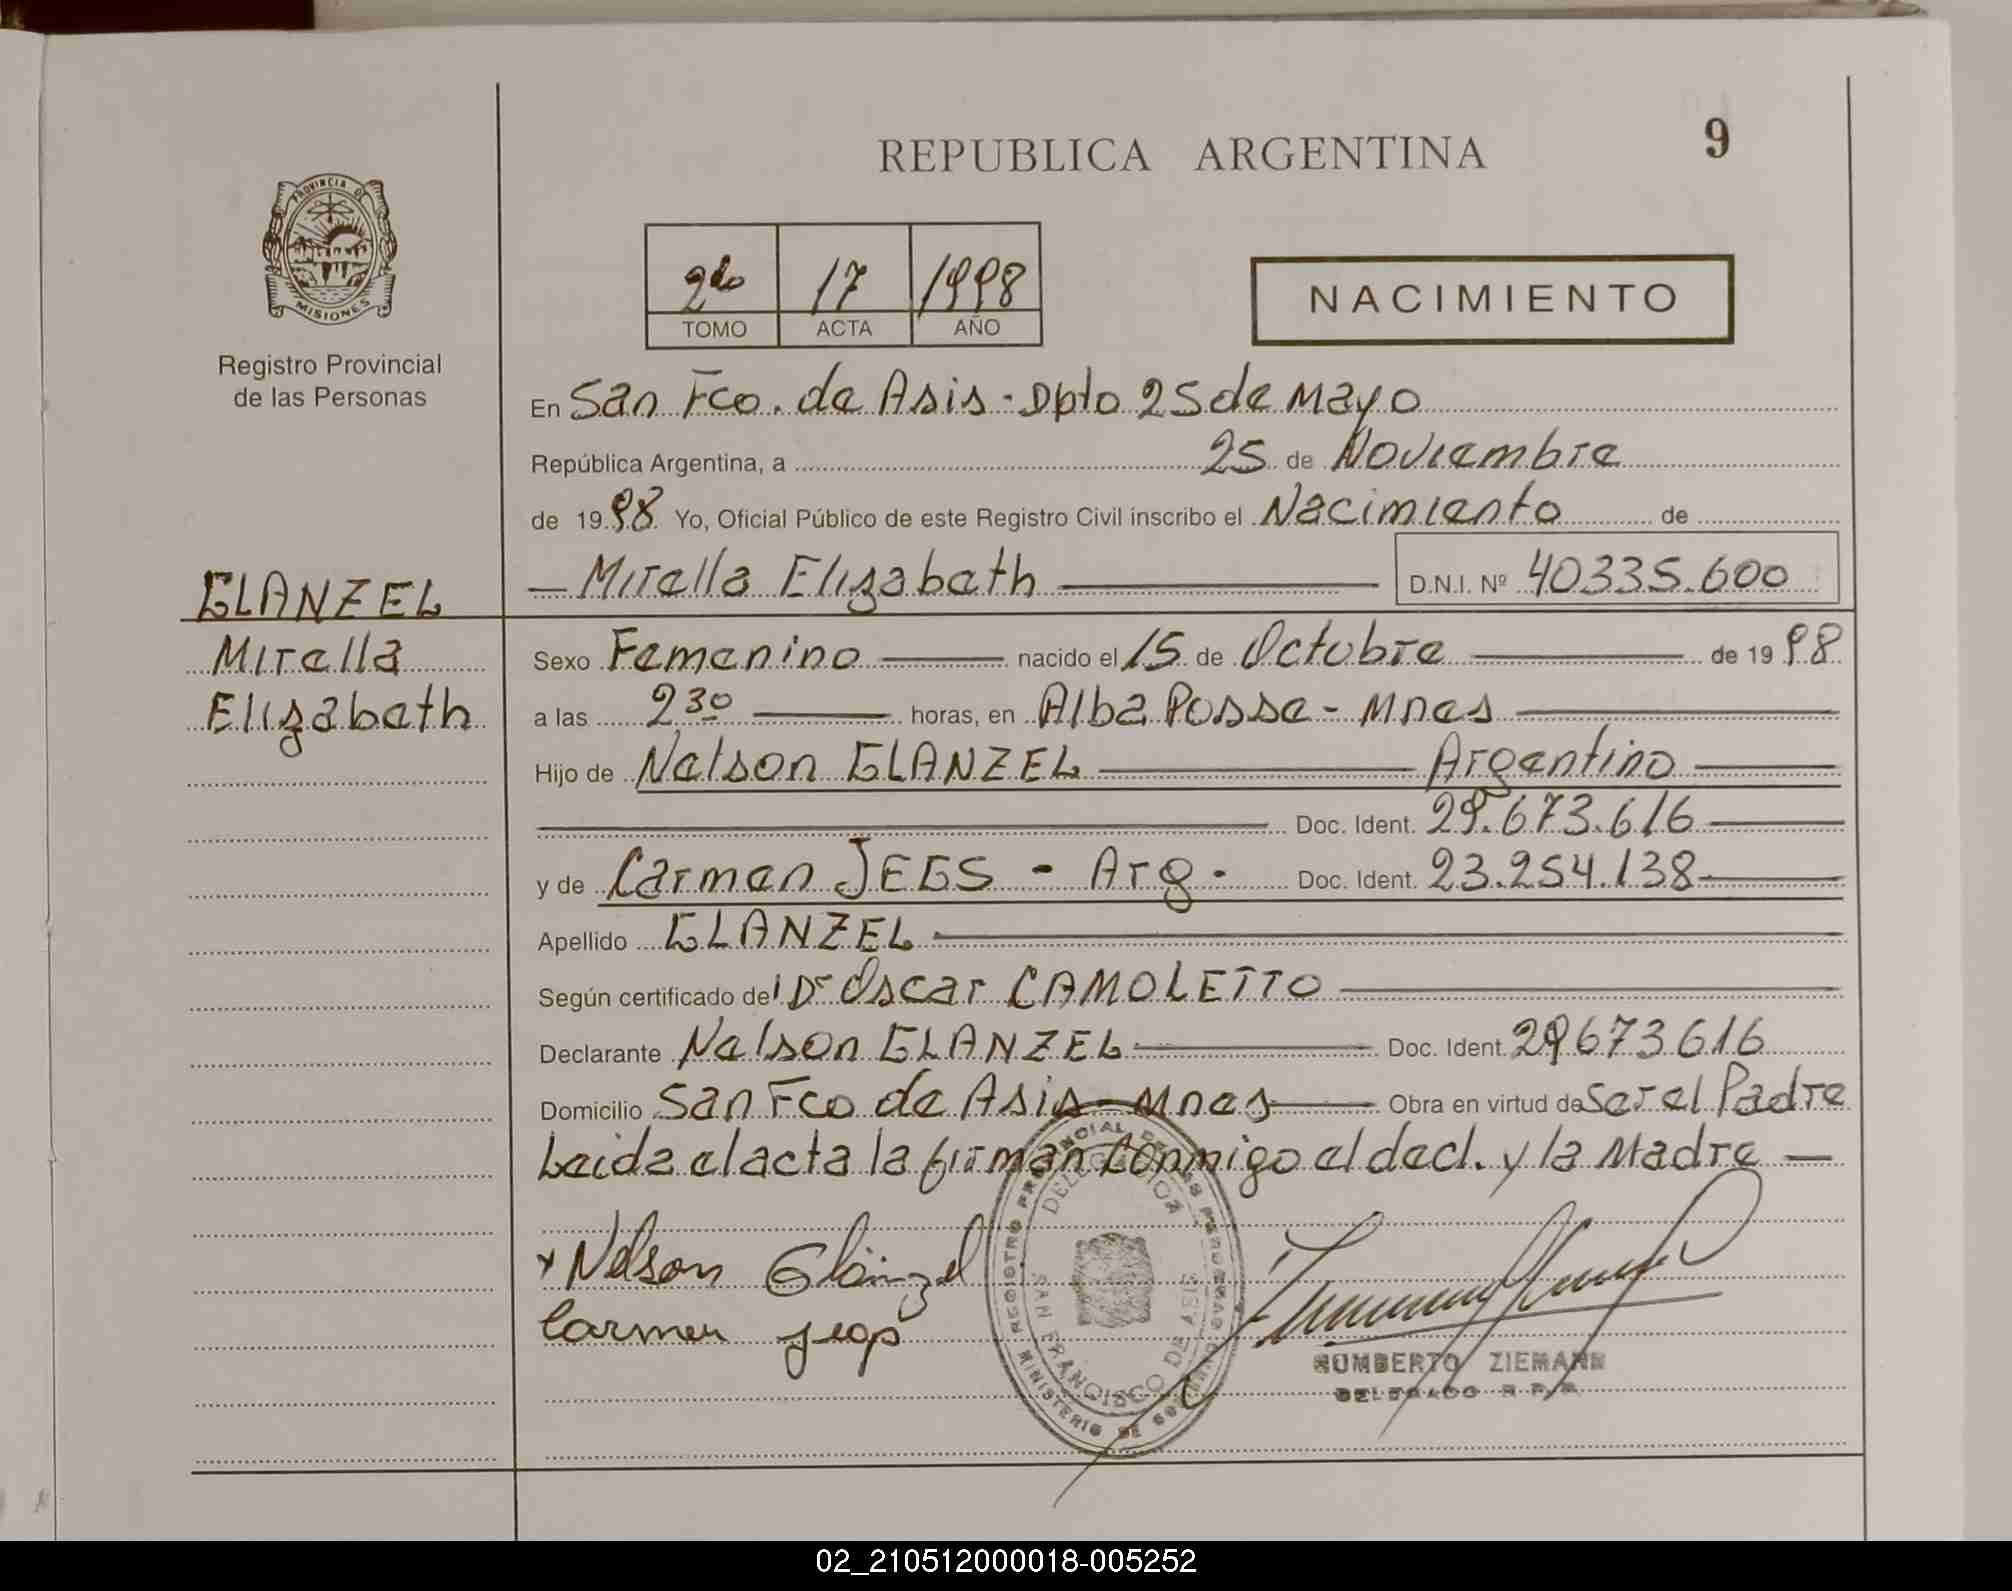 REPUBLICA ARGENTINA
9
PROVINCIA DE
MISIONES
Registro Provincial
de las Personas
2do 17 1998
TOMO ACTA AÑO
NACIMIENTO
En San Fco. de Asis - Dpto 25 de Mayo
República Argentina, a 25 de Noviembre
de 1998 Yo, Oficial Público de este Registro Civil inscribo el Nacimiento de
— Mirella Elizabeth — D.N.I. Nº 40335.600
GLANZEL
Mirella
Elizabeth
Sexo Femenino — nacido el 15 de Octubre — de 1998
a las 2 30 — horas, en Alba Posse - Mnes —
Hijo de Nelson GLANZEL — Argentino —
Doc. Ident. 29.673.616 —
y de Carmen JEGS - Arg. Doc. Ident. 23.254.138 —
Apellido GLANZEL —
Según certificado del Dr Oscar CAMOLETTO —
Declarante Nelson GLANZEL — Doc. Ident. 29673616
Domicilio San Fco de Asis - Mnes — Obra en virtud de Ser el Padre
Leida el acta la firman conmigo el decl. y la Madre —
Nelson Glänzel
Carmen
REGISTRO PROVINCIAL DE LAS PERSONAS
MINISTERIO DE GOBIERNO
SAN FRANCISCO DE ASIS
HUMBERTO ZIEMANN
DELEGADO R.P.P.
02_210512000018-005252